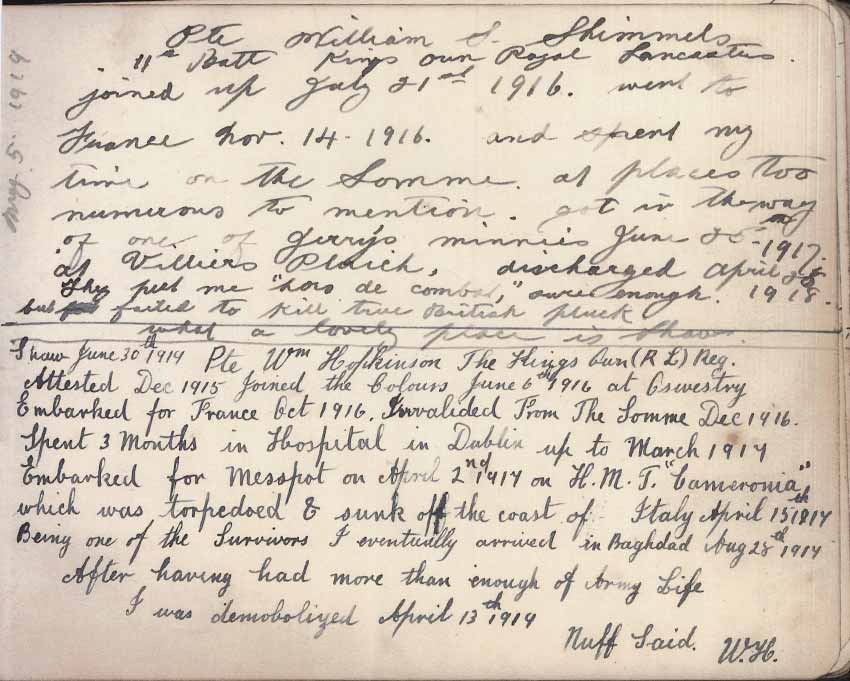 May 5. 1919
Pte William S. Shimmels
11th Batt Kings own Royal Lancasters.
joined up July 21st 1916. went to
France Nov. 14. 1916. and spent my
time on the Somme. at places too
numerous to mention. got in the way
of one of Jerry's minnies June 1917.
at Villiers Pluich, discharged april 1918.
They put me "hors de combat," sure enough.
but failed to kill true British pluck
what a lovely place is Shaw.
Shaw June 30th 1919 Pte Wm Hopkinson The Kings Own (R L) Reg.
Attested Dec 1915 Joined the Colours June 6th 1916 at Oswestry
Embarked for France Oct 1916. Invalided From The Somme Dec 1916.
Spent 3 Months in Hospital in Dublin up to March 1917
Embarked for Messpot on April 2nd 1917 on H. M. T. "Cameronia",
which was torpedoed & sunk off the coast of Italy April 15th 1917
Being one of the Survivors I eventually arrived in Baghdad Aug 28th 1917
After having had more than enough of Army Life
I was demobolized April 13th 1919
Nuff Said. W.H.